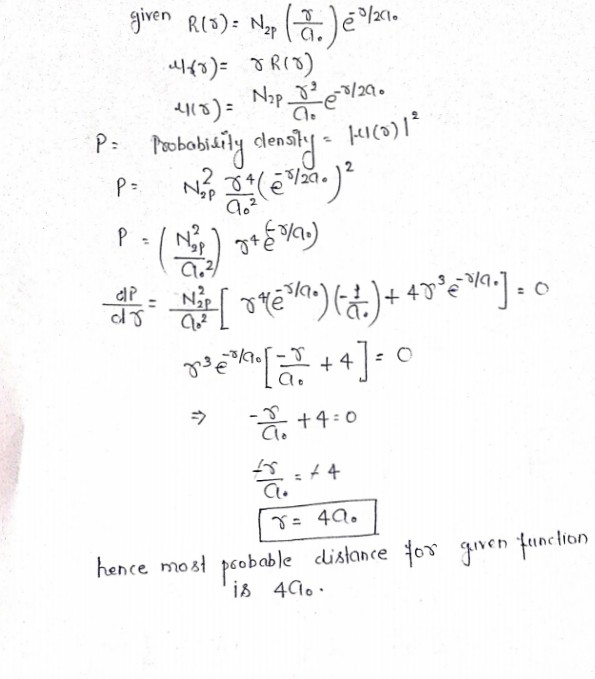 given R(r) = N₂p (r/a₀) e^-r/2a₀
u(r) = r R(r)
u(r) = N₂p r²/a₀ e^-r/2a₀
P = Probability density = |u(r)|²
P = N²₂p r⁴/a₀² (e^-r/2a₀)²
P = (N²₂p/a₀²) r⁴ e^(-r/a₀)
dP/dr = N²₂p/a₀² [ r⁴(e^-r/a₀)(-1/a₀) + 4r³ e^-r/a₀ ] = 0
r³ e^-r/a₀ [ -r/a₀ + 4 ] = 0
⇒ -r/a₀ + 4 = 0
-r/a₀ = -4
r = 4a₀
hence most probable distance for given function
is 4a₀.